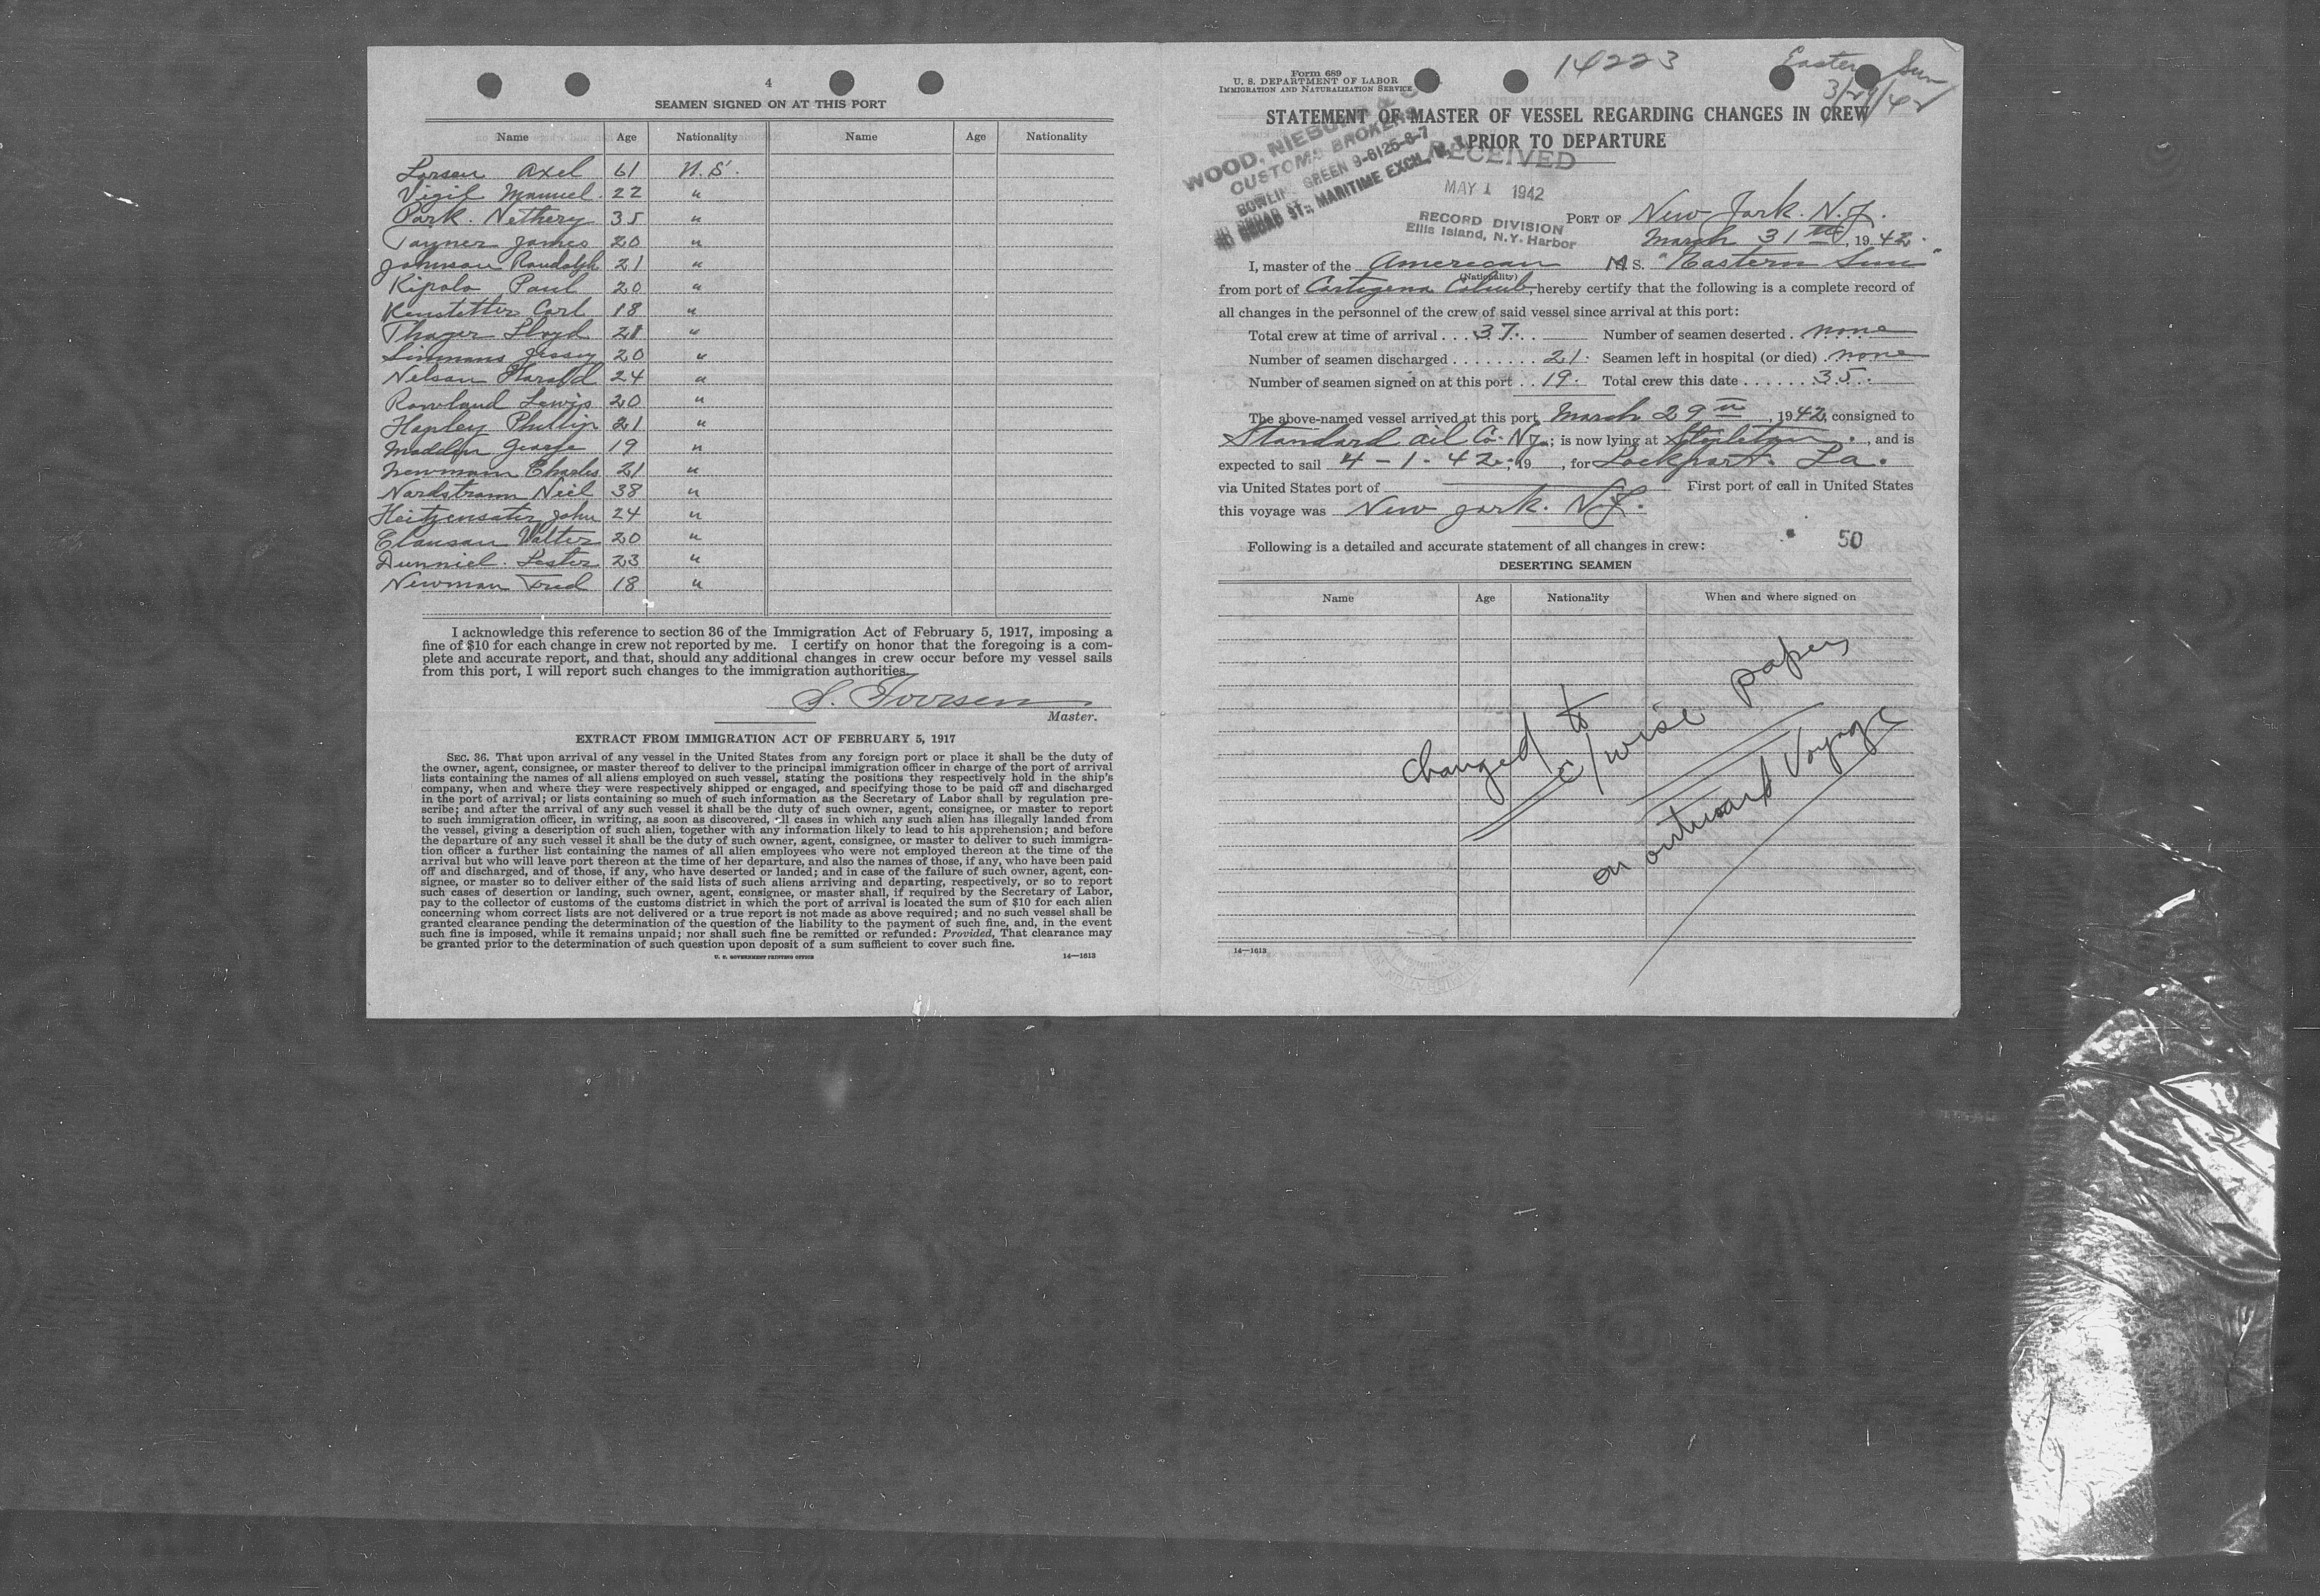 4
SEAMEN SIGNED ON AT THIS PORT
Name Age Nationality Name Age Nationality
Larsen Axel 61 U.S.
Vigil Manuel 22 "
Park. Nethery 35 "
Tayner James 20 "
Johnson Randolph 21 "
Ripolo Paul 20 "
Kenstetter Carl 18 "
Thager Lloyd 21 "
Simmans Jessy 20 "
Nelson Harald 24 "
Rowland Lewis 20 "
Hapley Phillip 21 "
Madden George 19 "
Newmam Charles 21 "
Nardstramm Neil 38 "
John 24 "
Clausan Walter 20 "
Dunniel. Lester 23 "
Newman Fred 18 "
I acknowledge this reference to section 36 of the Immigration Act of February 5, 1917, imposing a
fine of $10 for each change in crew not reported by me. I certify on honor that the foregoing is a com-
plete and accurate report, and that, should any additional changes in crew occur before my vessel sails
from this port, I will report such changes to the immigration authorities.
S.
Master.
EXTRACT FROM IMMIGRATION ACT OF FEBRUARY 5, 1917
SEC. 36. That upon arrival of any vessel in the United States from any foreign port or place it shall be the duty of
the owner, agent, consignee, or master thereof to deliver to the principal immigration officer in charge of the port of arrival
lists containing the names of all aliens employed on such vessel, stating the positions they respectively hold in the ship's
company, when and where they were respectively shipped or engaged, and specifying those to be paid off and discharged
in the port of arrival; or lists containing so much of such information as the Secretary of Labor shall by regulation pre-
scribe; and after the arrival of any such vessel it shall be the duty of such owner, agent, consignee, or master to report
to such immigration officer, in writing, as soon as discovered, all cases in which any such alien has illegally landed from
the vessel, giving a description of such alien, together with any information likely to lead to his apprehension; and before
the departure of any such vessel it shall be the duty of such owner, agent, consignee, or master to deliver to such immigra-
tion officer a further list containing the names of all alien employees who were not employed thereon at the time of the
arrival but who will leave port thereon at the time of her departure, and also the names of those, if any, who have been paid
off and discharged, and of those, if any, who have deserted or landed; and in case of the failure of such owner, agent, con-
signee, or master so to deliver either of the said lists of such aliens arriving and departing, respectively, or so to report
such cases of desertion or landing, such owner, agent, consignee, or master shall, if required by the Secretary of Labor,
pay to the collector of customs of the customs district in which the port of arrival is located the sum of $10 for each alien
concerning whom correct lists are not delivered or a true report is not made as above required; and no such vessel shall be
granted clearance pending the determination of the question of the liability to the payment of such fine, and, in the event
such fine is imposed, while it remains unpaid; nor shall such fine be remitted or refunded: Provided, That clearance may
be granted prior to the determination of such question upon deposit of a sum sufficient to cover such fine.
U. S. GOVERNMENT PRINTING OFFICE 14—1613
14223
Eastern Sun
3/29/42
Form 689
U. S. DEPARTMENT OF LABOR
IMMIGRATION AND NATURALIZATION SERVICE
STATEMENT OF MASTER OF VESSEL REGARDING CHANGES IN CREW
PRIOR TO DEPARTURE
WOOD, NIEBUHR &
CUSTOMS BROKERS
BOWLING GREEN 9-6125-6-7
BROAD ST., MARITIME EXCH., N. Y.
RECEIVED
MAY 1 1942
RECORD DIVISION
Ellis Island, N.Y. Harbor
PORT OF New York. N.Y.
March 31th, 1942.
I, master of the American M S. "Eastern Sun"
(Nationality)
from port of Cartigena Columb, hereby certify that the following is a complete record of
all changes in the personnel of the crew of said vessel since arrival at this port:
Total crew at time of arrival . . . 37. . . Number of seamen deserted . none
Number of seamen discharged . . . . . . . . 21. Seamen left in hospital (or died) . none
Number of seamen signed on at this port . . 19. Total crew this date . . . . . . . 35.
The above-named vessel arrived at this port March 29th, 1942, consigned to
Standard Oil Co. N.J.; is now lying at Stapleton., and is
expected to sail 4-1-42, 19 , for Lockport. La.
via United States port of First port of call in United States
this voyage was New York. N.Y.
50
Following is a detailed and accurate statement of all changes in crew:
DESERTING SEAMEN
Name Age Nationality When and where signed on
changed to
c/wise papers
on outward Voyage
14—1613